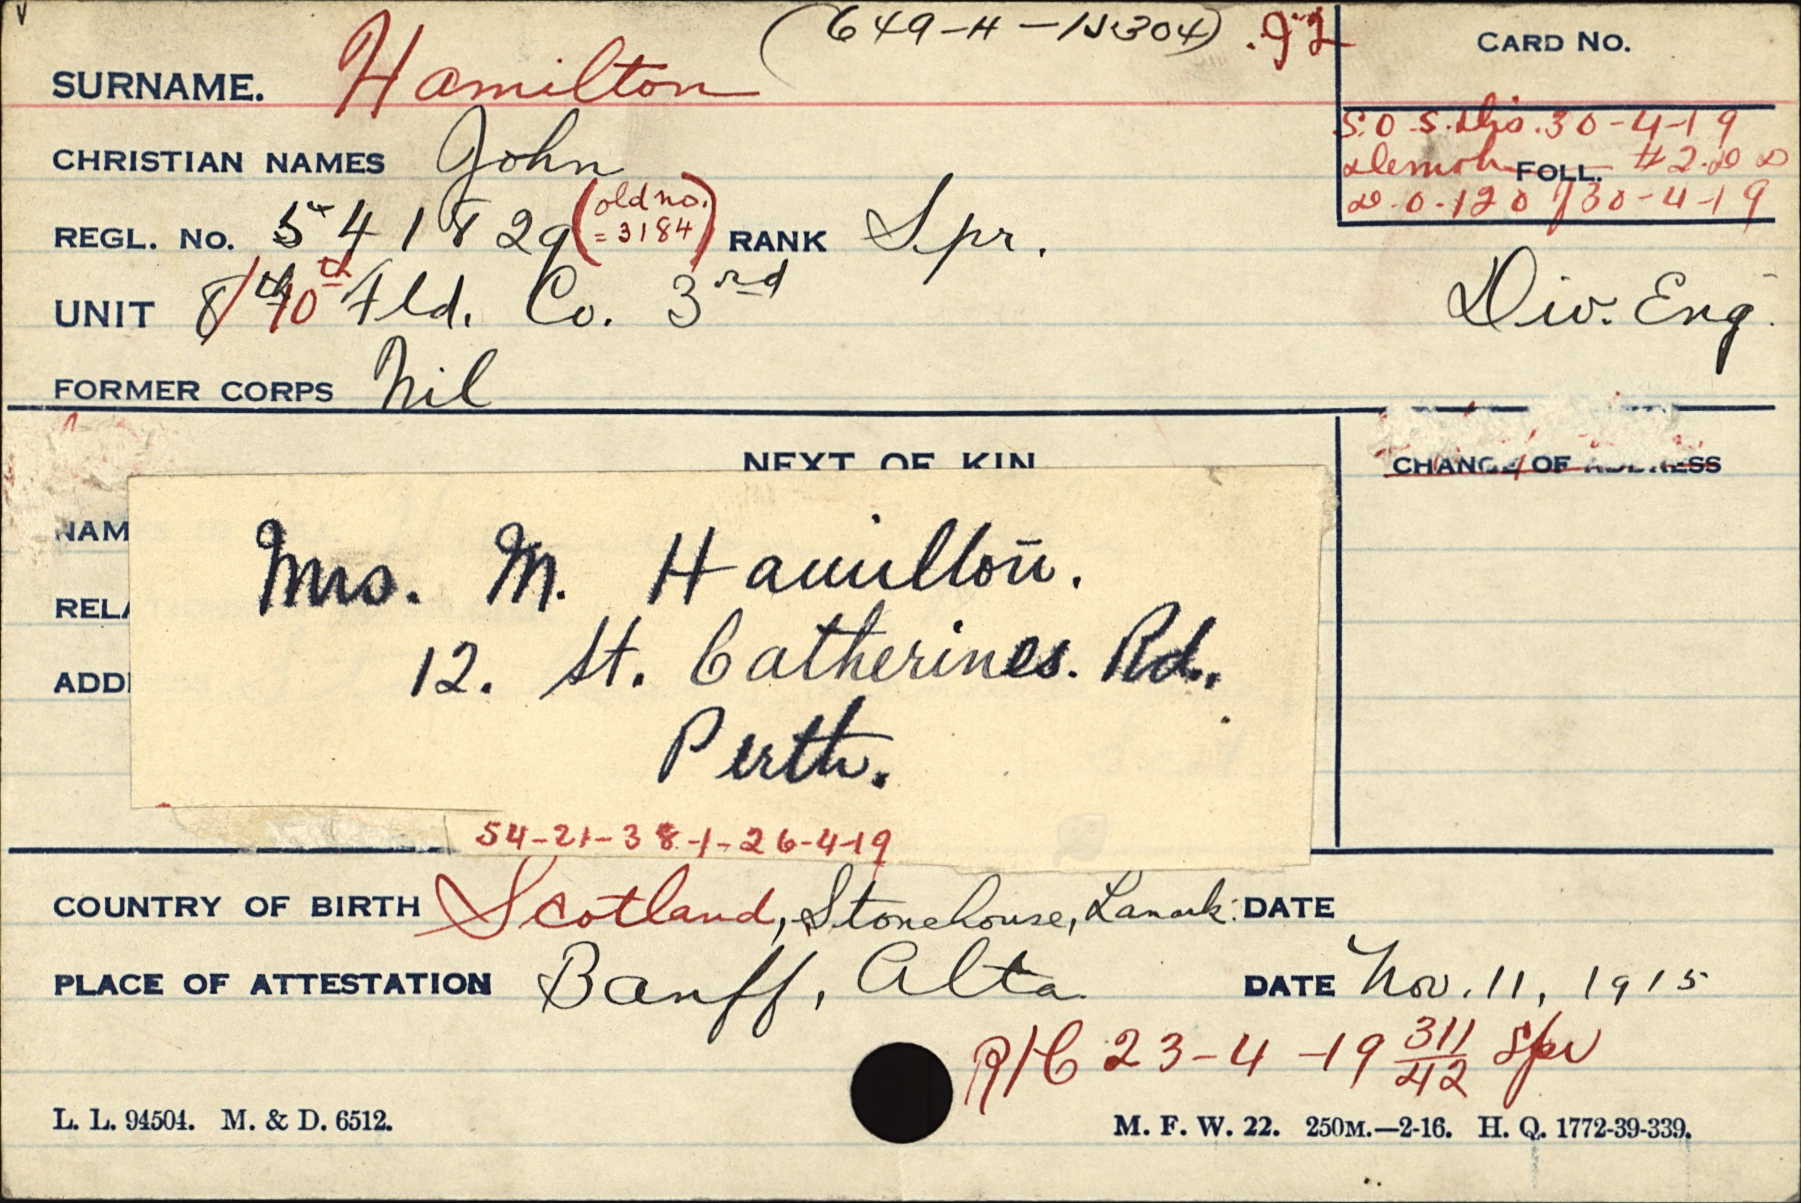 (649-H-N304) .92
CARD NO.
SURNAME. Hamilton
S.O.S. Dis. 30-4-19
CHRISTIAN NAMES John
Demob FOLL. #2. D D
D.O. 120 / 30-4-19
REGL. NO. 541829 (old no. = 3184) RANK Spr.
UNIT 8th/10th Fld. Co. 3rd Div. Eng.
FORMER CORPS Nil
NEXT OF KIN
CHANGE OF ADDRESS
NAM
Mrs. M. Hamilton.
RELA
12. St. Catherines. Rd.,
ADD
Perth.
54-21-38-1-26-4-19
COUNTRY OF BIRTH Scotland, Stonehouse, Lanark. DATE
PLACE OF ATTESTATION Banff, Alta. DATE Nov. 11, 1915
R/C 23-4-19 311/42 Spr
L. L. 94504. M. & D. 6512.
M. F. W. 22. 250M.—2-16. H. Q. 1772-39-339.